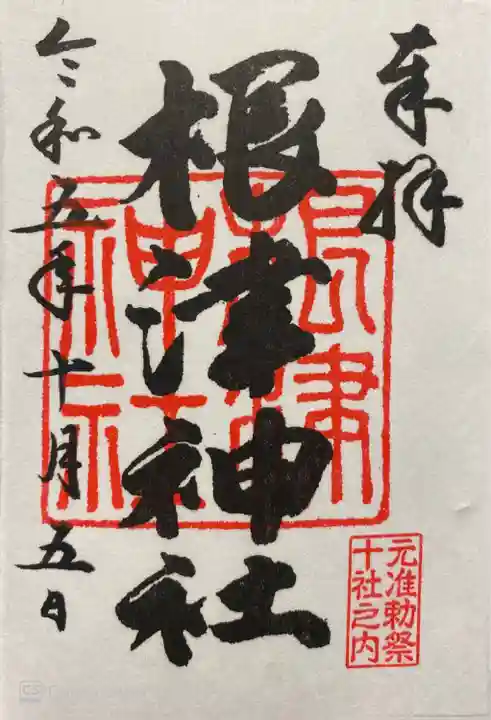 奉拝
根津神社
根津神社
元准勅祭
十社之内
令和五年十月五日
CS